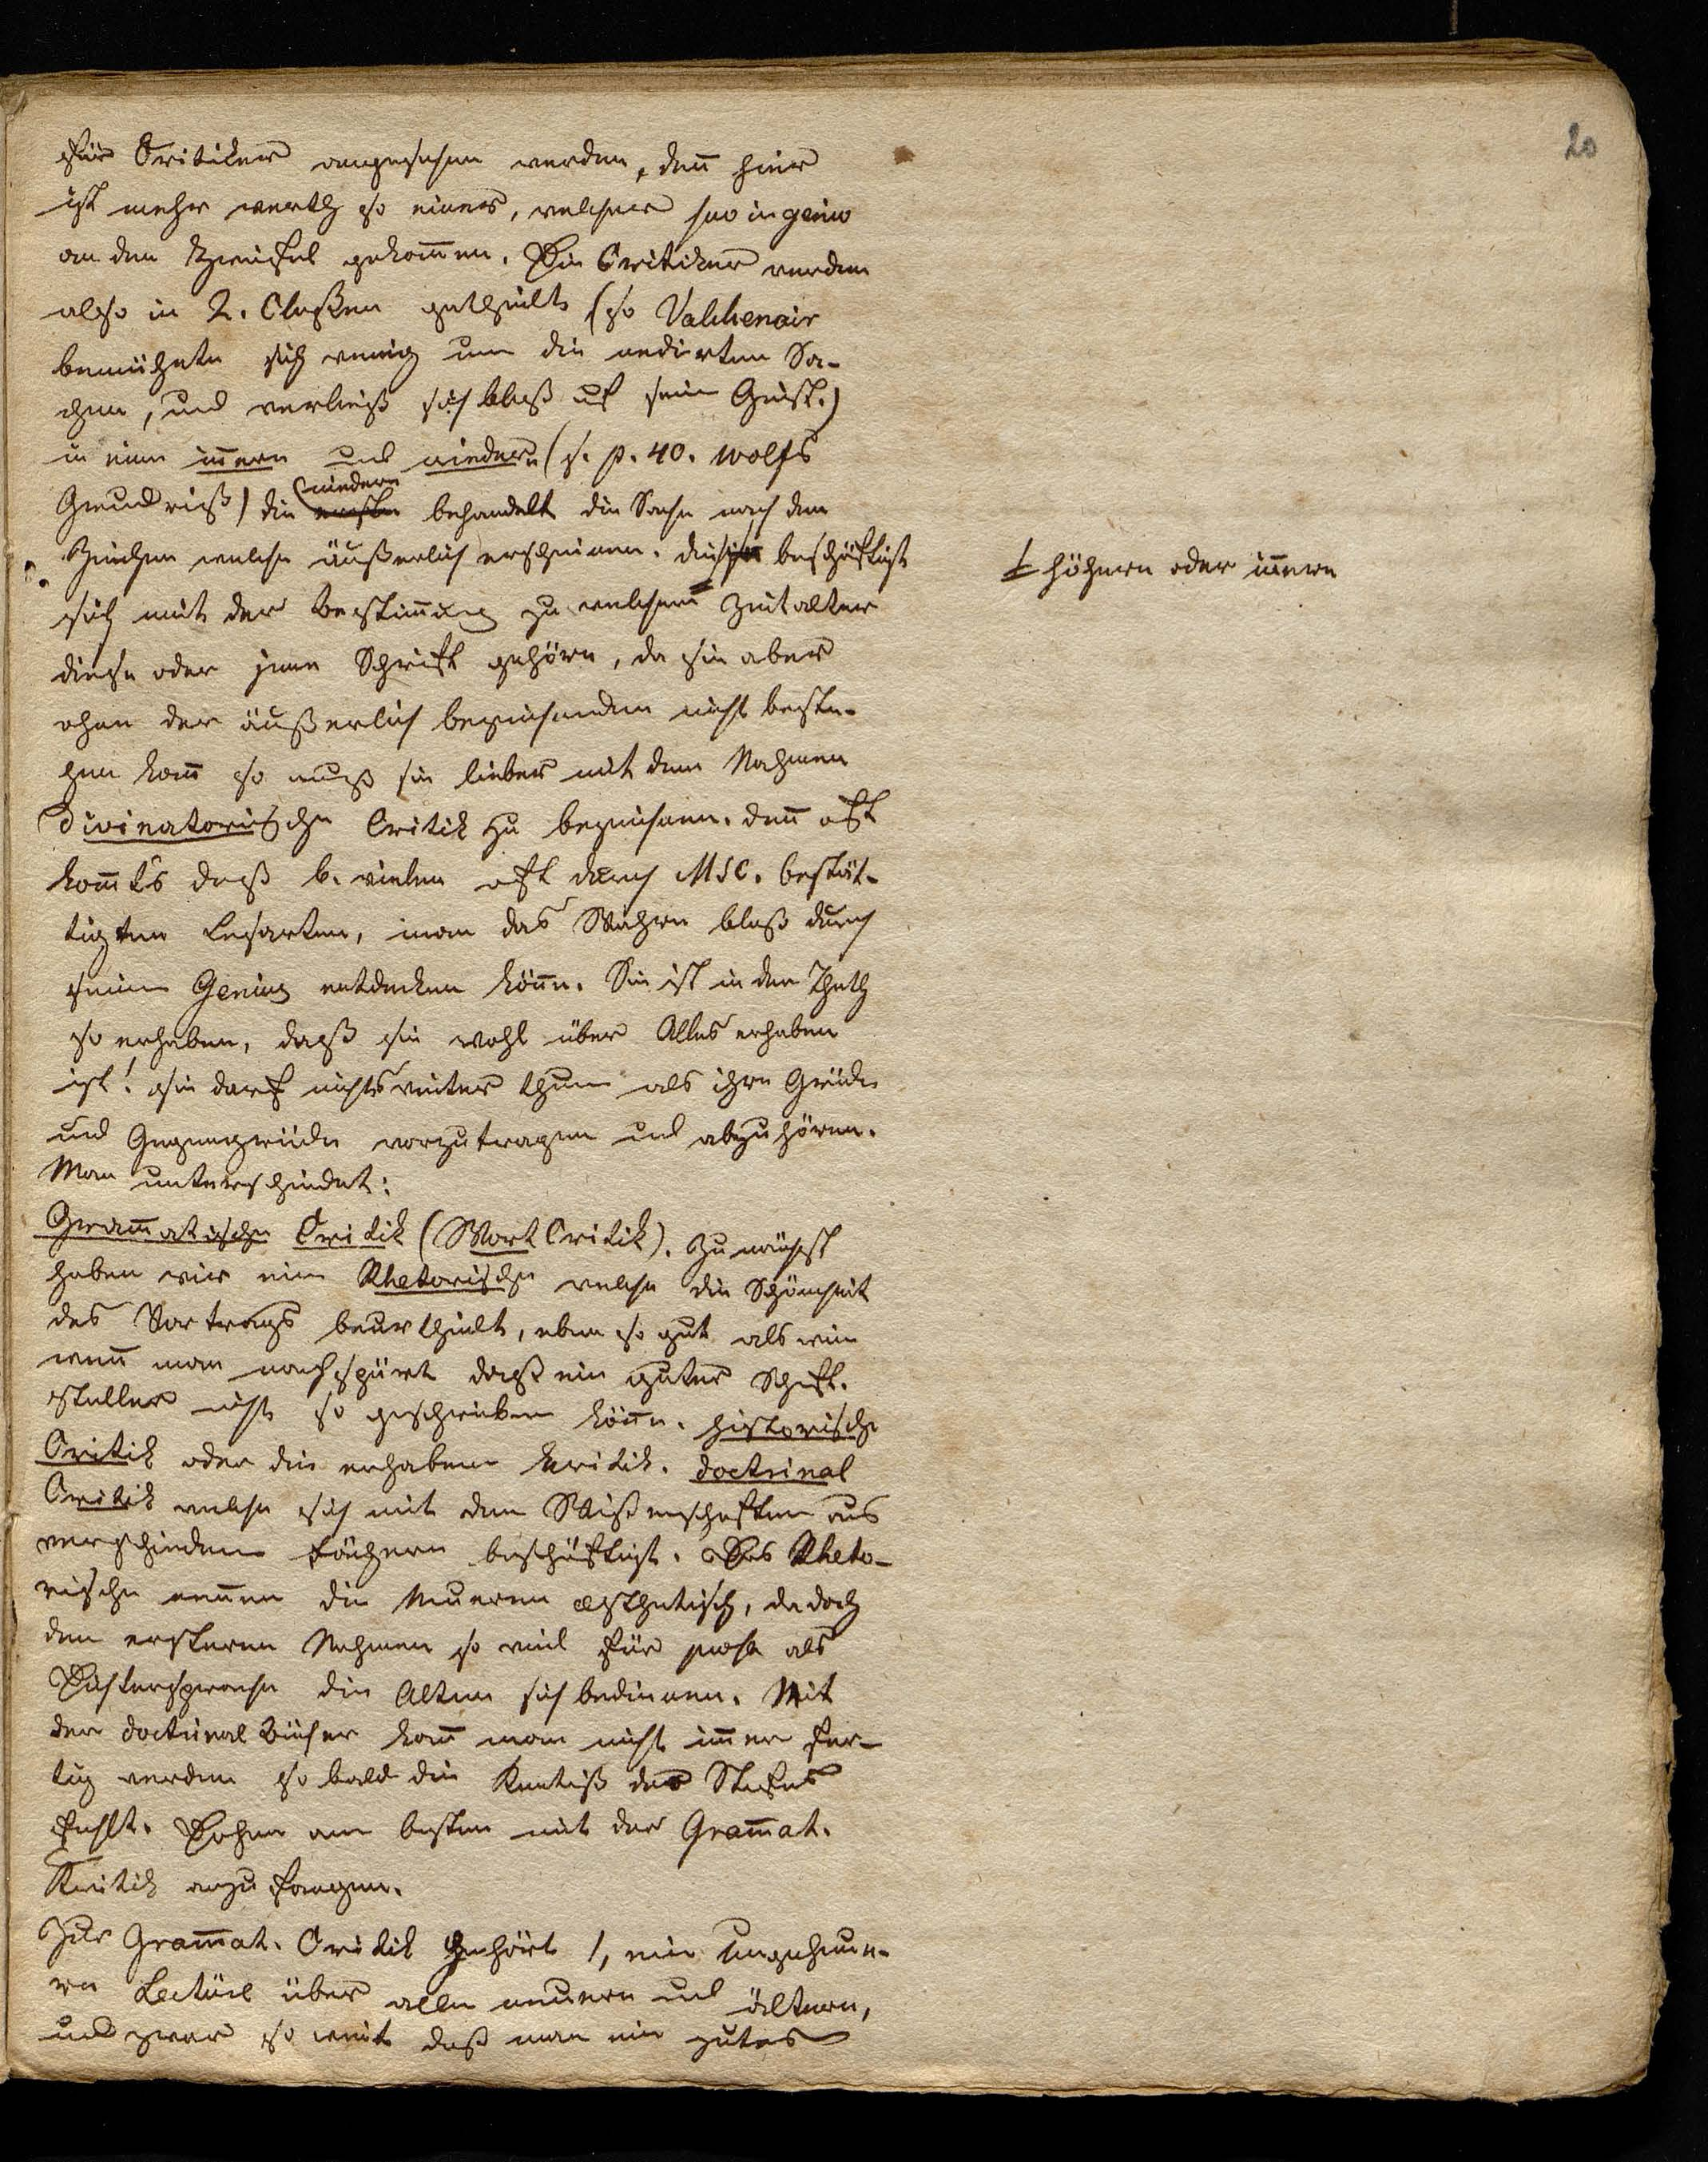 20
für Critiker angesehen werden, deñ hier
ist mehr werth so einer, welcher suo ingenio
an den Zweifel gekom̄en. Die Critiker werden
also in 2. Claßen getheilt (so Valckenair
bemühete sich wenig um die edirten Sa-
chen, und verließ sich bloß auf sein Geist.)
in eine iñern und niedern (s. p. 40. Wolfs
Grundriß) die ersten (niedern behandelt die Sache nach den
Zeichen welche äußerlich erscheinen. die beschäftigt
╪ höhern oder iñern
sich mit der Bestim̄ung zu welchem Zeitalter
diese oder jene Schrift gehöre, da sie aber
ohne der äußerlich bezeichenden nicht beste-
hen kañ so muß sie lieber mit dem Nahmen
divinatorischen Critik zu bezeichnen. deñ oft
kom̄ts daß b. vielen oft durch MSC. bestät-
tigten Lesarten, man das Wahre bloß durch
seinen Genius entdecken köñe. Sie ist in der Thath
so erhaben, daß sie wohl über Alles erhaben
ist! sie darf nichts weiter thun als ihre Gründe
und Gegengründe vorzutragen und abzuhören.
Man unterscheidet:
Gram̄atische Critik (Wort Critik). Zunächst
haben wir eine Rhetorische welche die Schönheit
des Vortrags beurtheilt, eben so gut als wie
weñ man nachspürt daß ein guter Schift-
steller nicht so geschrieben köñe. historische
Critik oder die erhabene Kritik. doctrinal
Critik welche sich mit den Wißenschaften aus
verschiedene Fächern beschäftigt. Das Rheto-
rische neñen die Neueren æsthetisch, da doch
den ersteren Nahmen so viel für prosa als
Dichtersprache die Alten sich bedienen. Mit
der doctrinal Bücher kañ man nicht im̄er fer-
tig werden so bald die Kentniß des Stofes
fehlt. Daher am besten mit der Gram̄at.
Kritik anzufangen.
Zur Gram̄at. Critik gehört 1, eine ungeheue-
re Lectüre über alle neuern und ältern,
und zwar so weit daß man ein gutes